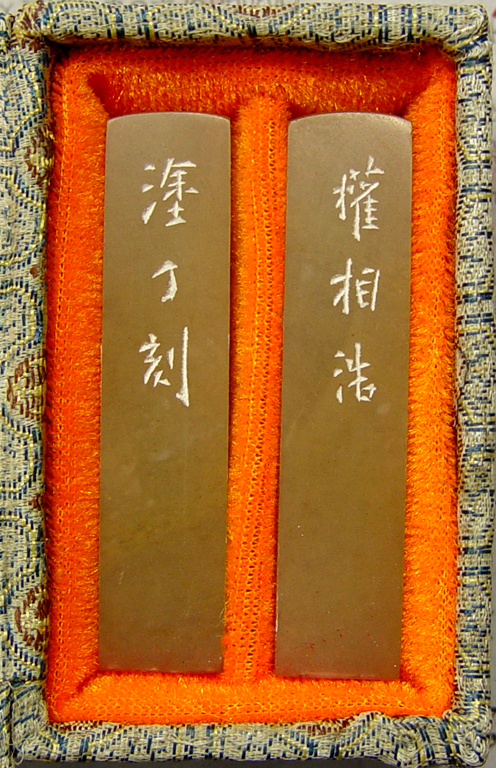 權相浩
塗丁刻